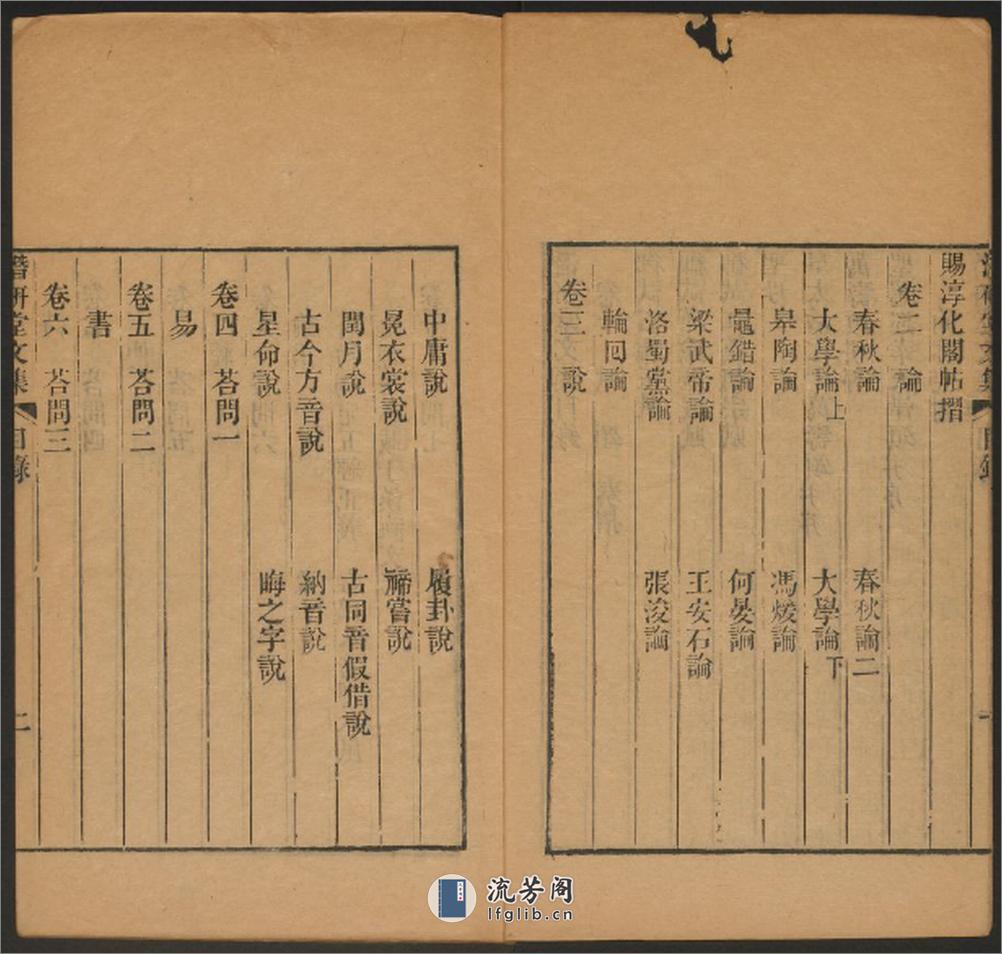 賜淳化閣帖摺
卷二 論
春秋論 春秋論二
大學論上 大學論下
皋陶論 馮煖論
鼂錯論 何晏論
梁武帝論 王安石論
洛蜀黨論 張浚論
輪回論
卷三 說
中庸說 履卦說
冕衣裳說 禘嘗說
閏月說 古同音假借說
古今方音說 納音說
星命說 晦之字說
卷四 荅問一
易
卷五 荅問二
書
卷六 荅問三
潛研堂文集 目錄 二
流芳阁
lfglib.cn